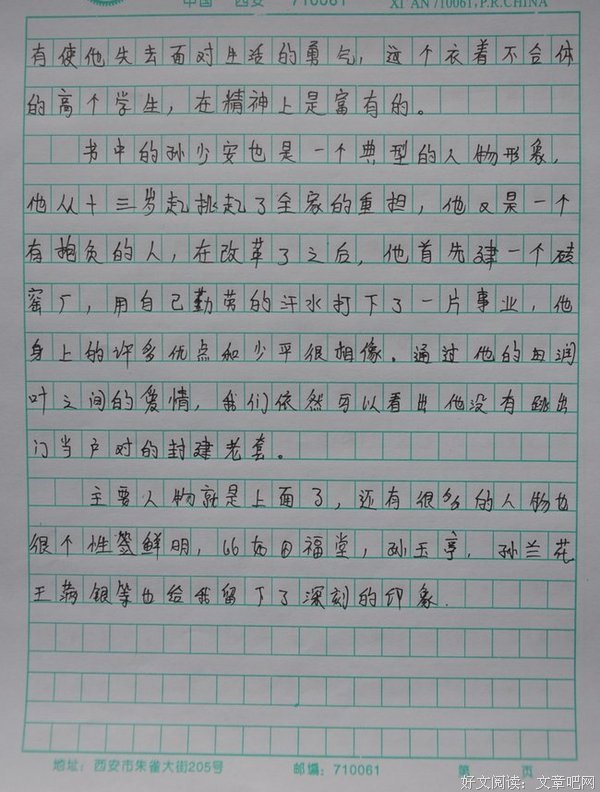 中国 西安 710061 XI'AN 710061, P.R.CHINA
有使他失去面对生活的勇气，这个衣着不合体
的高个学生，在精神上是富有的。
书中的孙少安也是一个典型的人物形象，
他从十三岁起挑起了全家的重担，他又是一个
有抱负的人，在改革了之后，他首先建一个砖
窑厂，用自己勤劳的汗水打下了一片事业，他
身上的许多优点和少平很相像。通过他的田润
叶之间的爱情，我们依然可以看出他没有跳出
门当户对的封建老套。
主要人物就是上面了，还有很多的人物也
很个性签鲜明，比如田福堂，孙玉亭，孙兰花
王满银等也给我留下了深刻的印象.
地址：西安市朱雀大街205号 邮编：710061 第 页
好文阅读：文章吧网